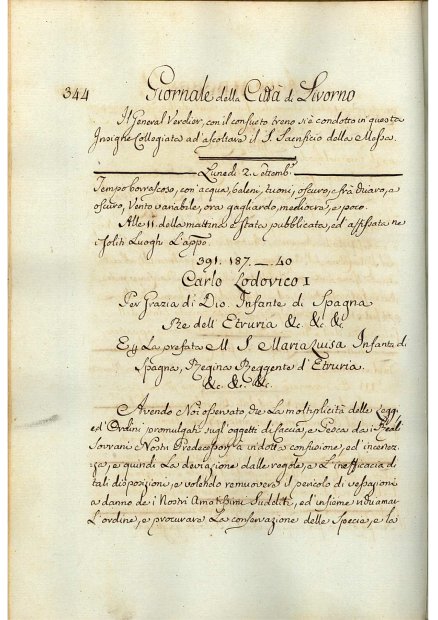 344 Giornale della Città di Livorno
Il General Verdier, con il consueto treno si è condotto in questa
Insigne Collegiata ad ascoltare il S. Sacrificio della Messa.
Lunedi 2. Settemb.
Tempo borrascoso, con acqua, baleni, tuoni, oscuro, e frà chiaro, e
oscuro, Vento variabile, ora gagliardo, mediocre, e poco.
Alle 11. della mattina è stata pubblicata, ed affissata ne
i soliti Luoghi L'appo.
391. 187. — 40
Carlo Lodovico I
Per Grazia di Dio. Infante di Spagna
Rè dell Etruria &c. &c. &c.
E La prefata M. S. Maria Luisa Infanta di
Spagna, Regina Reggente d'Etruria.
&c. &c. &c.
Avendo Noi osservato che La moltiplicità delle Legg.
ed Ordini promulgati sugl'oggetti di Caccia, e Pesca dai Reali
Sovrani Nostri Predecessori à indotta confusione, ed incertez-
za, e quindi La deviazione dalle regole, e L'inefficacia di
tali disposizioni, e volendo removere il pericolo di vessazioni
a danno dei Nostri Amatissimi Sudditi, ed insieme richiamar
L'ordine, e procurare La conservazione delle Specie, e la